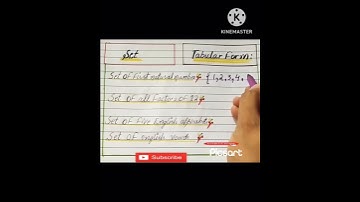 KINEMASTER
Set
Tabular Form:
Set of first natural number { 1,2,3,4,
Set of all factors of 32
Set of five English alphabet
Set of english vowels
Subscribe
PicsArt